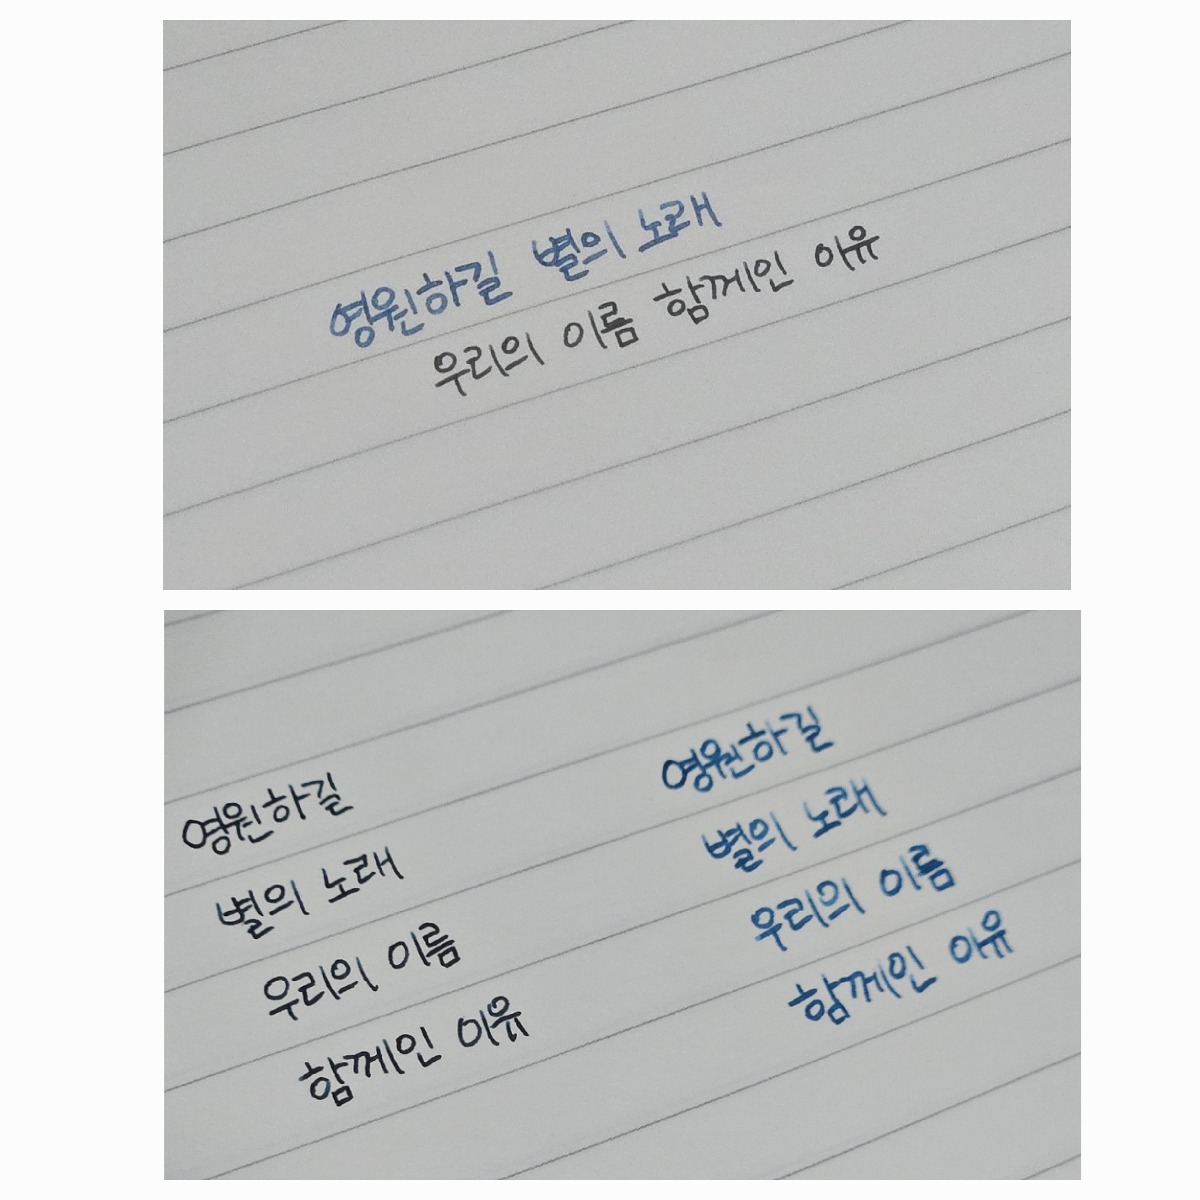 영원하길 별의 노래
우리의 이름 함께인 이유
영원하길
별의 노래
우리의 이름
함께인 이유
영원하길
별의 노래
우리의 이름
함께인 이유